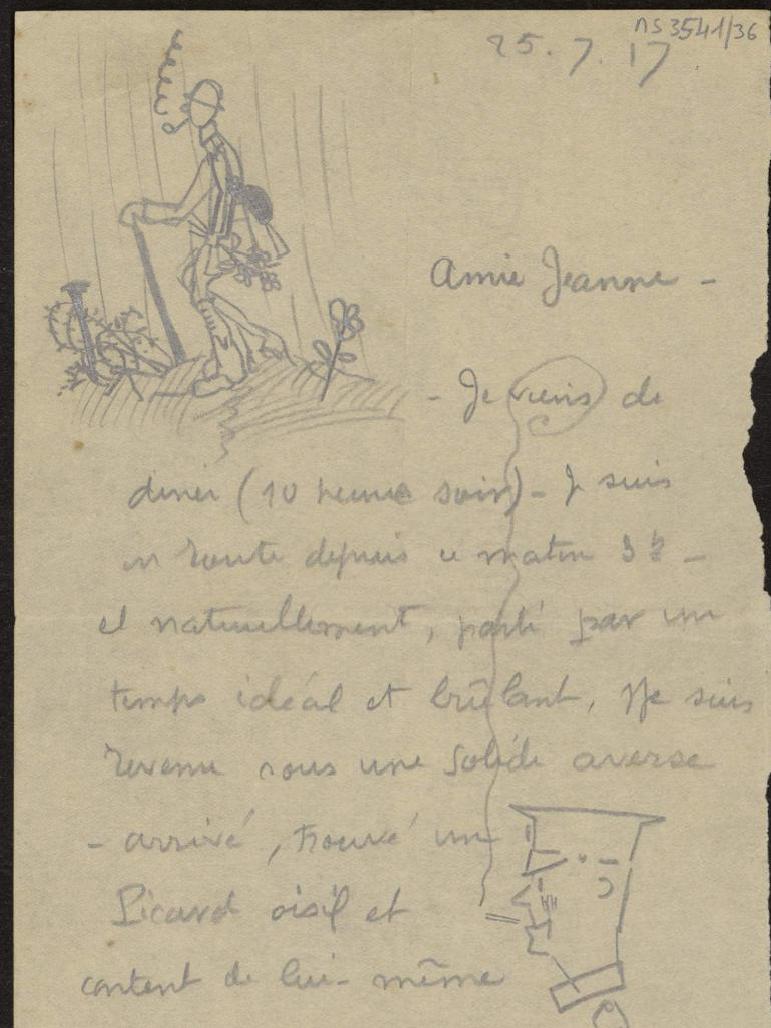 ns 3541/36
25.7.17
Amie Jeanne -
- Je viens de
diner (10 heures soir) - Je suis
en route depuis ce matin 3h -
et naturellement, parti par un
temps idéal et brûlant, je suis
revenu sous une solide averse
- arrivé, trouvé un
Picard oisif et
content de lui-même